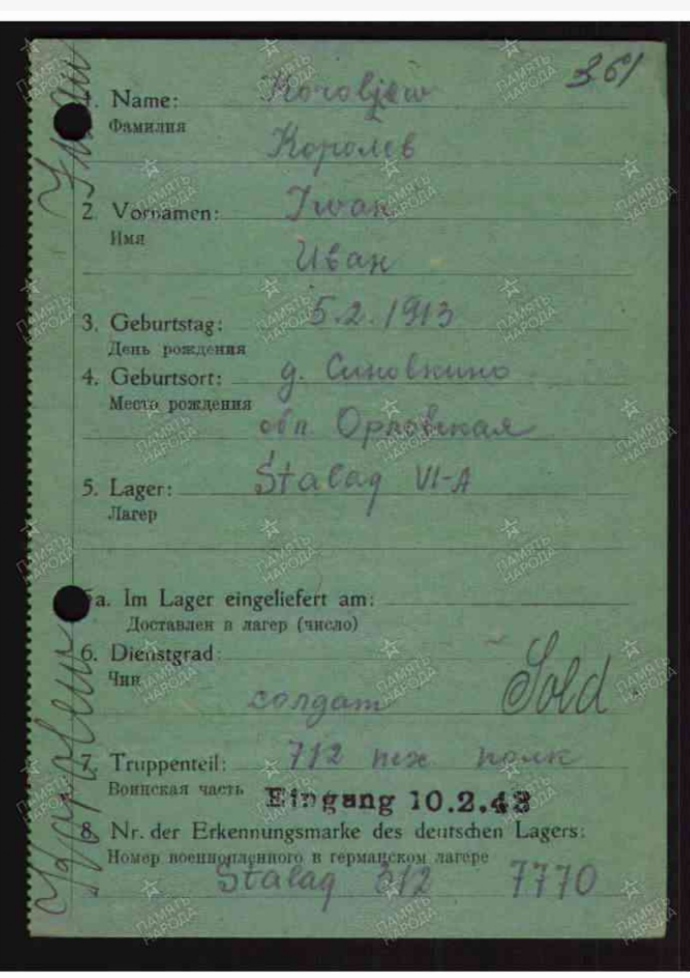 361
1. Name: Koroljew
Фамилия
Королев
2. Vornamen: Iwan
Имя
Иван
3. Geburtstag: 5.2.1913
День рождения
4. Geburtsort: д. Синовкино
Место рождения
обл. Орловская
5. Lager: Stalag VI-A
Лагер
5a. Im Lager eingeliefert am:
Доставлен в лагер (число)
6. Dienstgrad:
Чин
солдат Sold.
7. Truppenteil: 712 пех полк
Воинская часть
Eingang 10.2.43
8. Nr. der Erkennungsmarke des deutschen Lagers:
Номер военнопленного в германском лагере
Stalag 7770
ПАМЯТЬ
НАРОДА